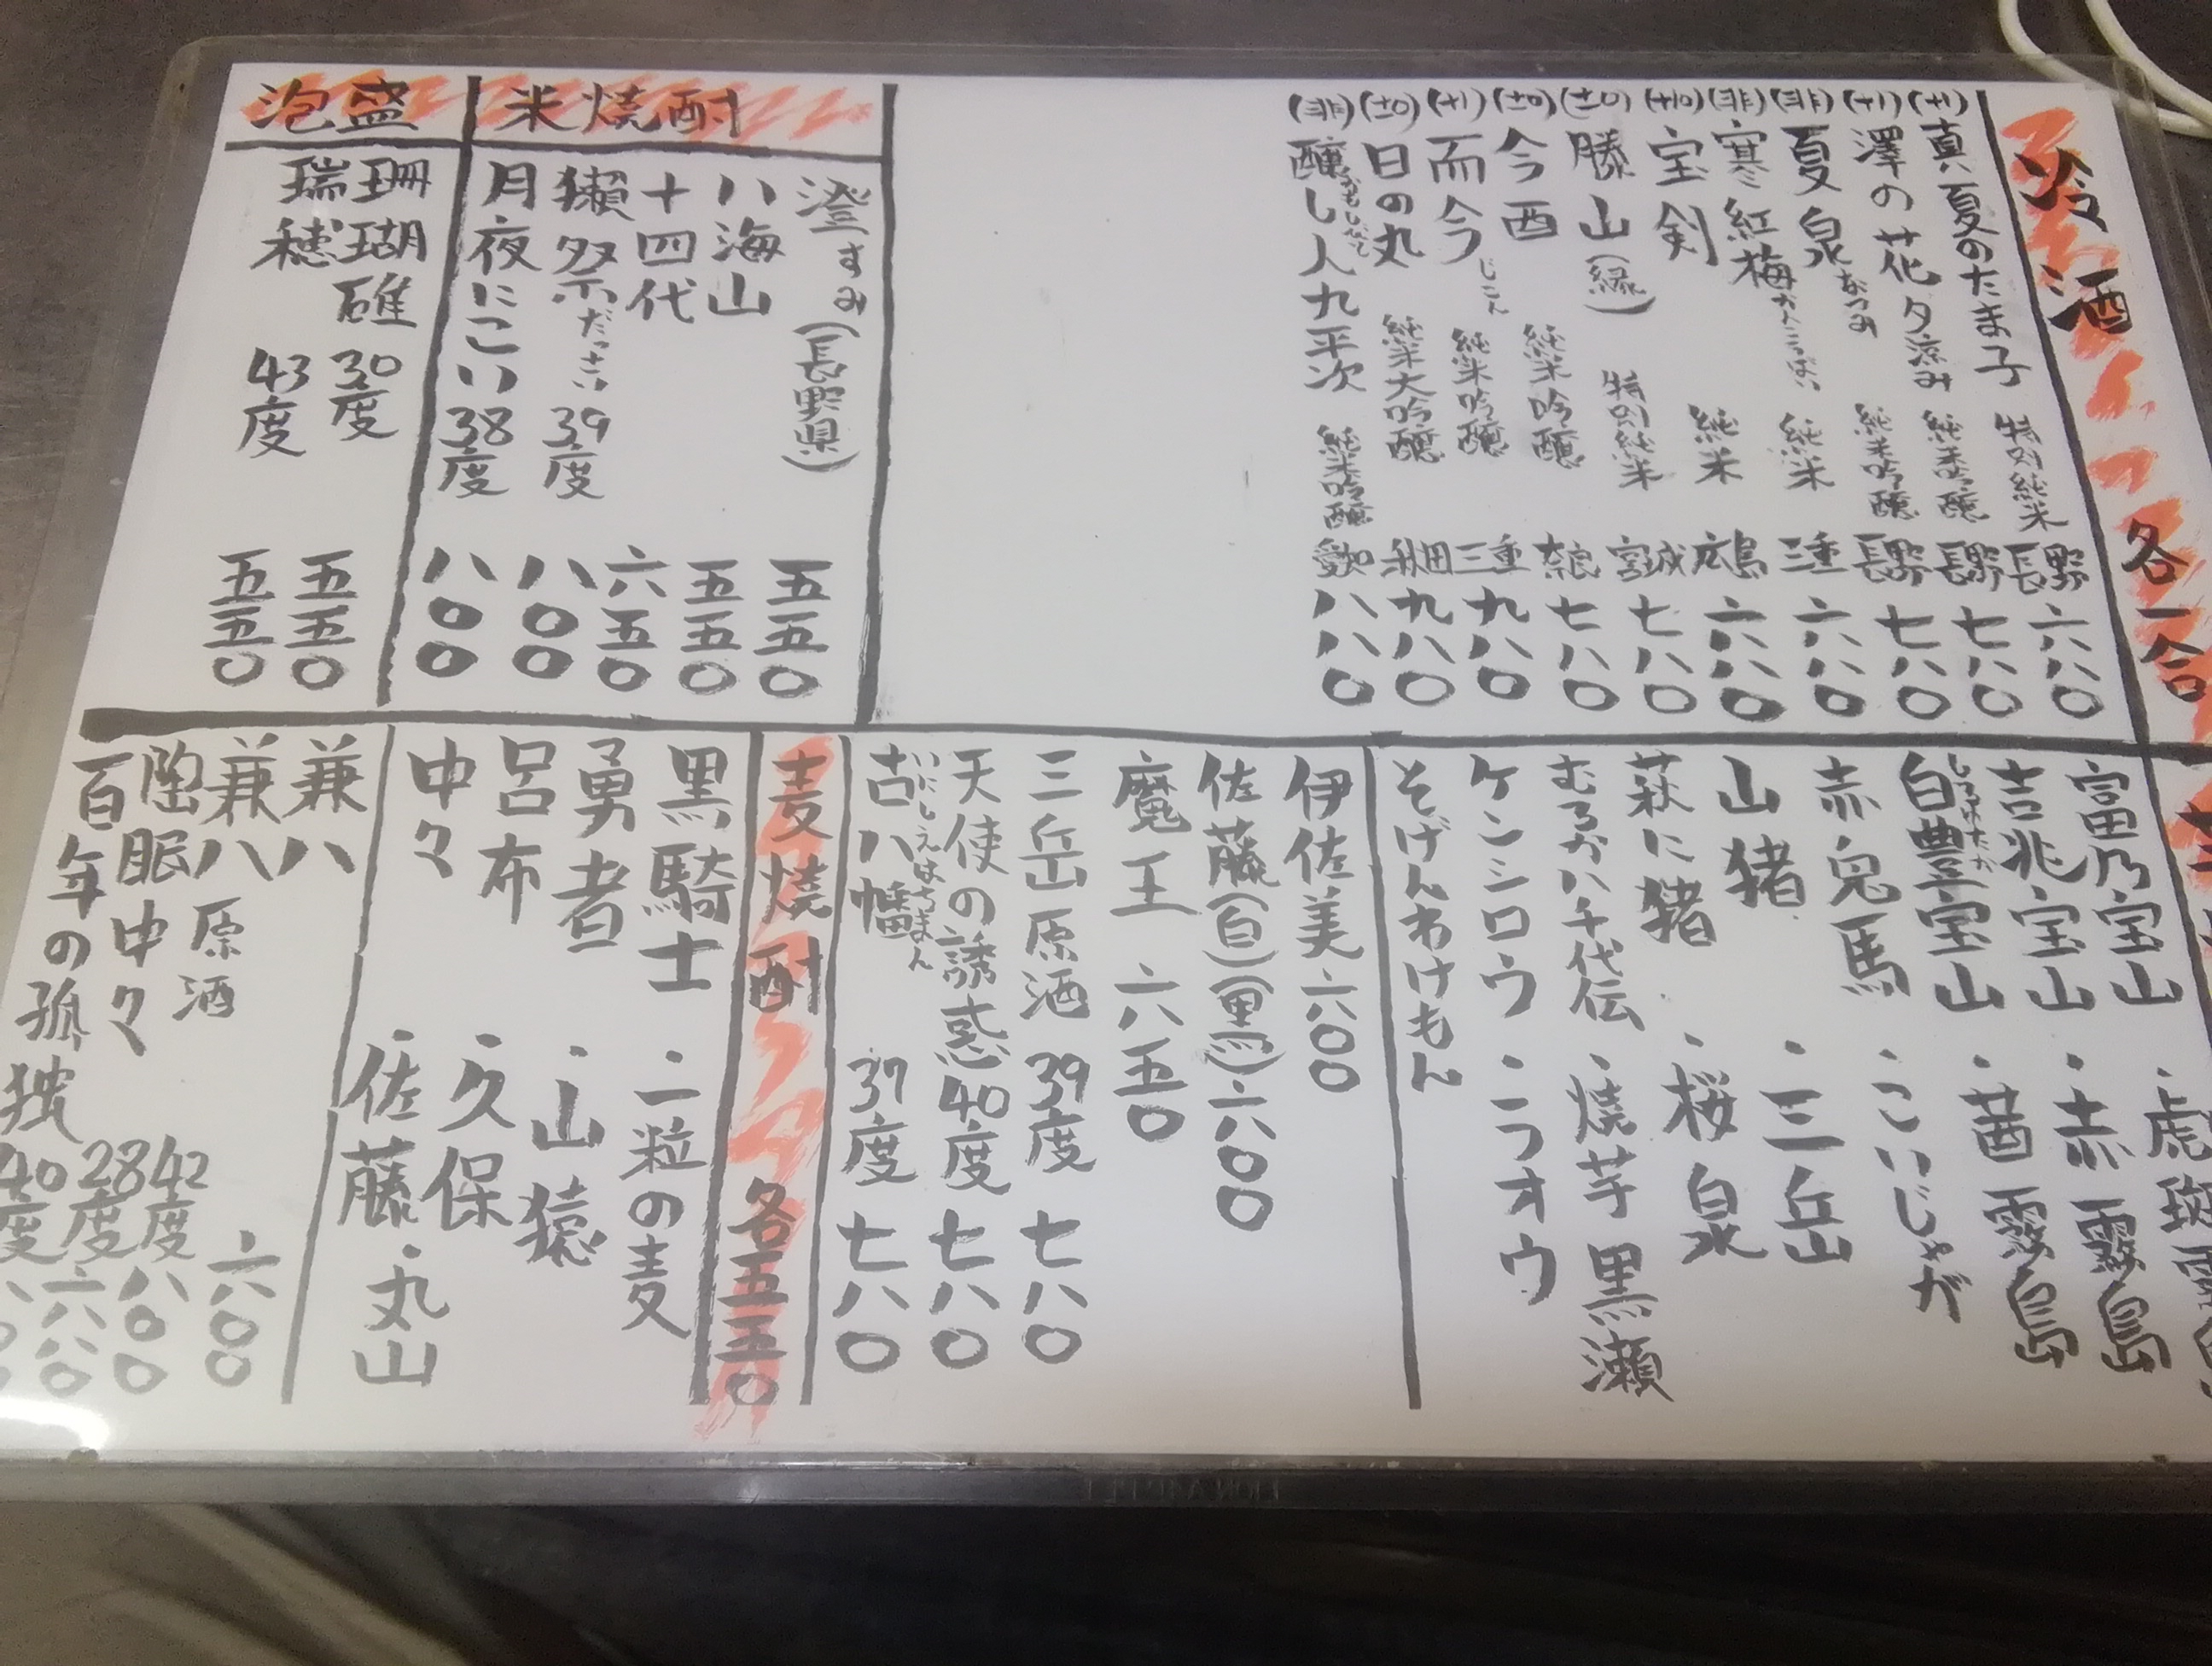 冷酒 各一合
(+1) 真夏のたま子 特別純米 長野 六八〇
(+1) 澤の花 夕涼み 純米吟醸 長野 七八〇
(非) 夏泉 なつみ 純米吟醸 長野 七八〇
(非) 寒紅梅 純米 三重 六八〇
(+10) 宝剣 純米 広島 六八〇
(±0) 勝山(縁) 特別純米 宮城 七八〇
(±0) 今西 純米吟醸 奈良 七八〇
(+1) 而今 じこん 純米吟醸 三重 九八〇
(±0) 日の丸 純米大吟醸 秋田 九八〇
(非) 醸し人九平次 かもしびと 純米吟醸 愛知 八八〇
米焼酎
澄 すみ (長野県) 五五〇
八海山 五五〇
十四代 六五〇
獺祭 だっさい 39度 八〇〇
月夜にこい 38度 八〇〇
泡盛
珊瑚礁 30度 五五〇
瑞穂 43度 五五〇
富乃宝山
吉兆宝山 ・赤霧島
白豊宝山 しらゆたか ・茜霧島
赤兎馬 ・こいじゃが
山猪 ・三岳
萩に猪 ・桜泉
むろか八千代伝 ・焼芋 黒瀬
ケンシロウ ・ラオウ
そげんわけもん
伊佐美 六〇〇
佐藤(白)(黒) 六〇〇
魔王 六五〇
三岳原酒 39度 七八〇
天使の誘惑 40度 七八〇
古八幡 いにしえはちまん 37度 七八〇
麦焼酎 各五五〇
黒騎士 ・一粒の麦
勇者 ・山猿
呂布 ・久保
中々 ・佐藤 ・丸山
兼八 六〇〇
兼八 原酒 42度 八〇〇
陶眠中々 28度 六八〇
百年の孤独 40度